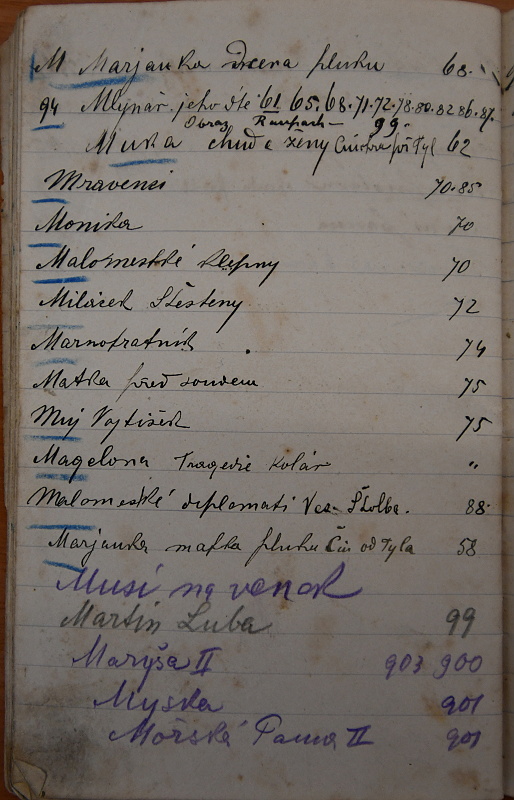 M Marjanka dcera pluku 68.
94 Mlynář jeho dítě 61 65. 68. 71. 72. 78. 80. 82 86. 87.
Obraz Raupach 99.
Muka chudé ženy od Tyl 62
Mravenci 70.85
Monika 70
Malomestké klepny 70
Miláček Štěsteny 72
Marnotratník 74
Matka před soudem 75
Můj Vojtíšek 75
Magelona Tragedie Kolár "
Malomestké diplomati Ves. Štolba. 88
Marjanka matka pluku Čin od Tyla 58
Musí na venek
Martin Luba 99
Maryša II 903 900
Myska 901
Mořská Panna II 901